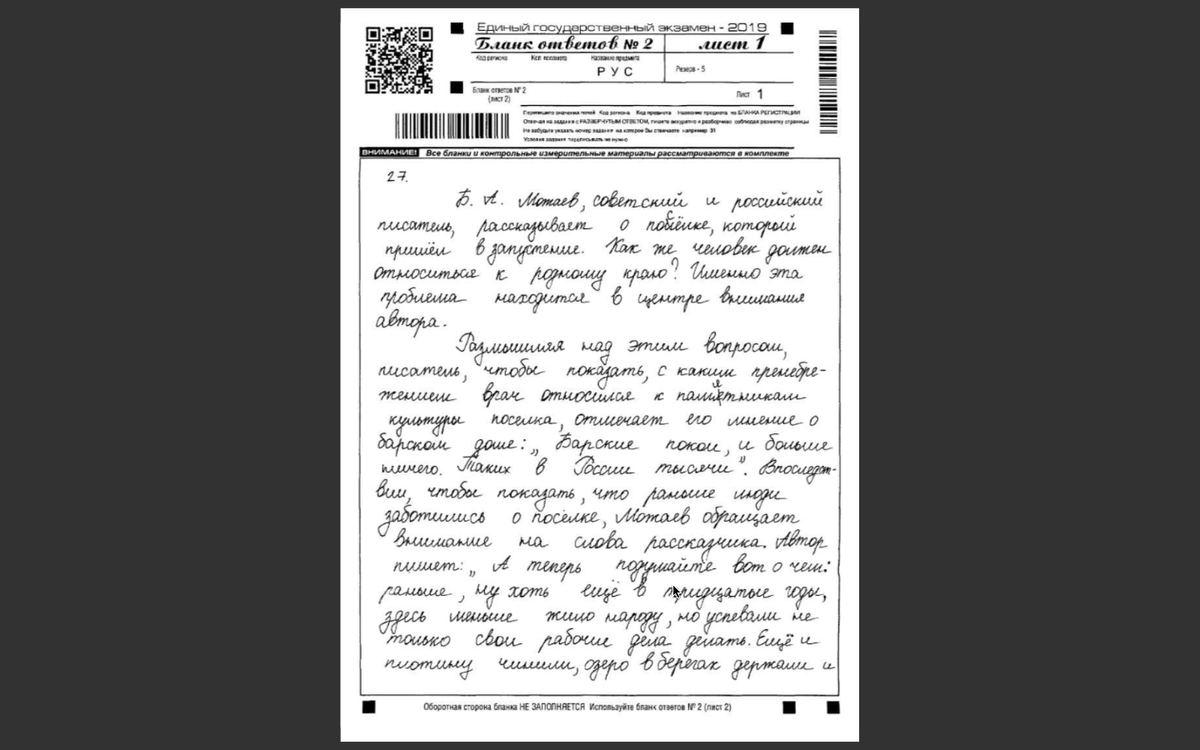 Единый государственный экзамен - 2019
Бланк ответов № 2 лист 1
Код региона Код предмета Название предмета Резерв - 5
РУС
Бланк ответов № 2
(лист 2)
Лист 1
Перепишите значения полей "Код региона", "Код предмета", "Название предмета" из БЛАНКА РЕГИСТРАЦИИ.
Отвечая на задания с РАЗВЕРНУТЫМ ОТВЕТОМ, пишите аккуратно и разборчиво, соблюдая разметку страницы.
Не забудьте указать номер задания, на которое Вы отвечаете, например, 31
Условия задания переписывать не нужно.
ВНИМАНИЕ! Все бланки и контрольные измерительные материалы рассматриваются в комплекте
27.
Б. А. Можаев, советский и российский
писатель, рассказывает о посёлке, который
пришёл в запустение. Как же человек должен
относиться к родному краю? Именно эта
проблема находится в центре внимания
автора.
Размышляя над этим вопросом,
писатель, чтобы показать, с каким пренебре-
жением врач относился к памятникам
культуры поселка, отмечает его мнение о
барском доме: „Барские покои, и больше
ничего. Таких в России тысячи". Впоследст-
вии, чтобы показать, что раньше люди
заботились о посёлке, Можаев обращает
внимание на слова рассказчика. Автор
пишет: „А теперь подумайте вот о чем:
раньше, ну хоть ещё в тридцатые годы,
здесь меньше жило народу, но успевали не
только свои рабочие дела делать. Ещё и
плотину чинили, озеро в берегах держали и
Оборотная сторона бланка НЕ ЗАПОЛНЯЕТСЯ. Используйте бланк ответов № 2 (лист 2)